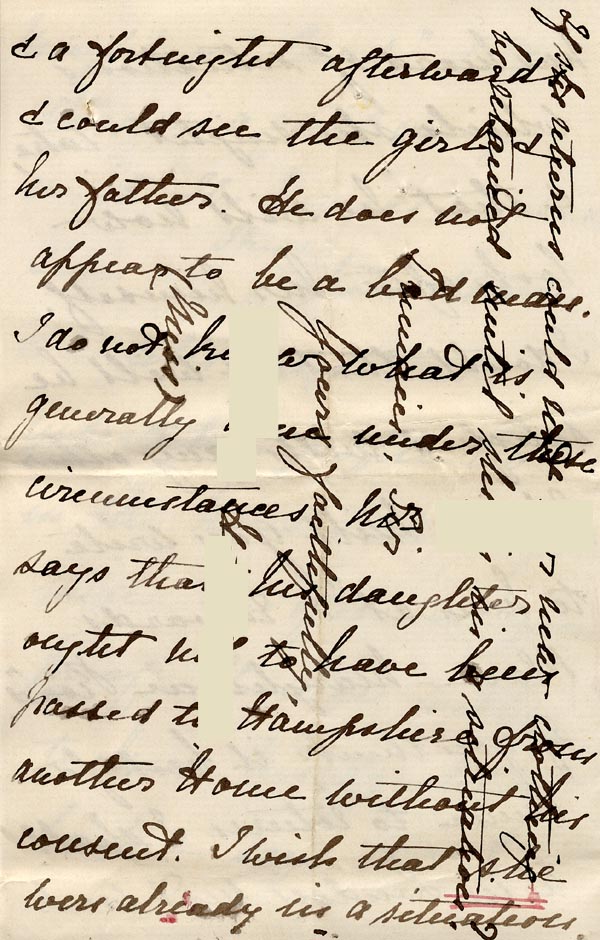 & a fortnight afterwards
I could see the girl &
her father. He does not
appear to be a bad man.
I do not know what is
generally done under these
circumstances. Mr.
says that his daughter
ought not to have been
passed to Hampshire from
another Home without his
consent. I wish that she
were already in a situation.
If she returns could
her mother
be retained until she is
in situation?
Yours faithfully,